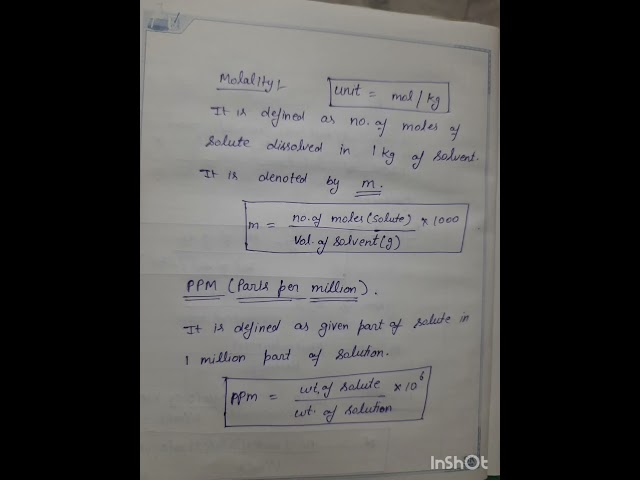 Molality:-
unit = mol/kg
It is defined as no. of moles of
solute dissolved in 1 kg of solvent.
It is denoted by m.
m = no. of moles (solute) × 1000
vol. of solvent (g)
PPM (Parts per million).
It is defined as given part of solute in
1 million part of solution.
ppm = wt. of solute × 10⁶
wt. of solution
InShot